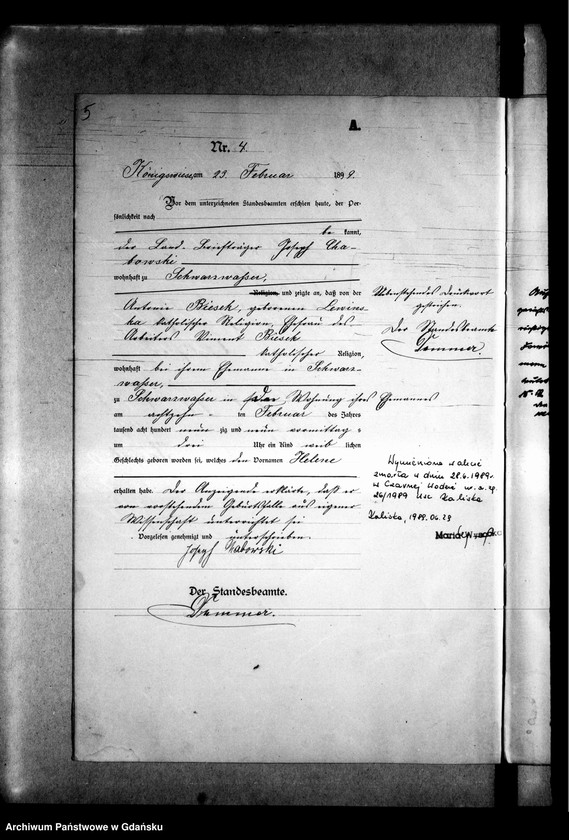 5
A.
Nr. 4.
Königswiese am 23. Februar 1899.
Vor dem unterzeichneten Standesbeamten erschien heute, der Per-
sönlichkeit nach
be kannt,
der Land-Briefträger Joseph Cha-
bowski
wohnhaft zu Schwarzwasser,
Religion, und zeigte an, daß von der
Antonie Biesek, geborenen Lewins-
ka katholischer Religion, Ehefrau des
Arbeiters Vincent Biesek
katholischer Religion,
wohnhaft bei ihrem Ehemanne in Schwarz-
wasser,
zu Schwarzwasser in der Wohnung ihres Ehemannes
am achtzehn ten Februar des Jahres
tausend acht hundert neun zig und neun vormittags
um drei Uhr ein Kind weib lichen
Geschlechts geboren worden sei, welches den Vornamen Helene
erhalten habe. Der Anzeigende erklärte, daß er
von vorstehendem Geburtsfalle aus eigener
Wissenschaft unterrichtet sei
Vorgelesen genehmigt und unterschrieben
Joseph Chabowski
Der Standesbeamte.
Dammer.
Nebenstehendes Druckwort
gestrichen.
Der Standesbeamte
Dammer.
Wymieniona w akcie
zmarła w dniu 28.6.1989r.
w Czarnej Wodzie
26/1989 USC Kaliska
Kaliska, 1989.06.29
Archiwum Państwowe w Gdańsku